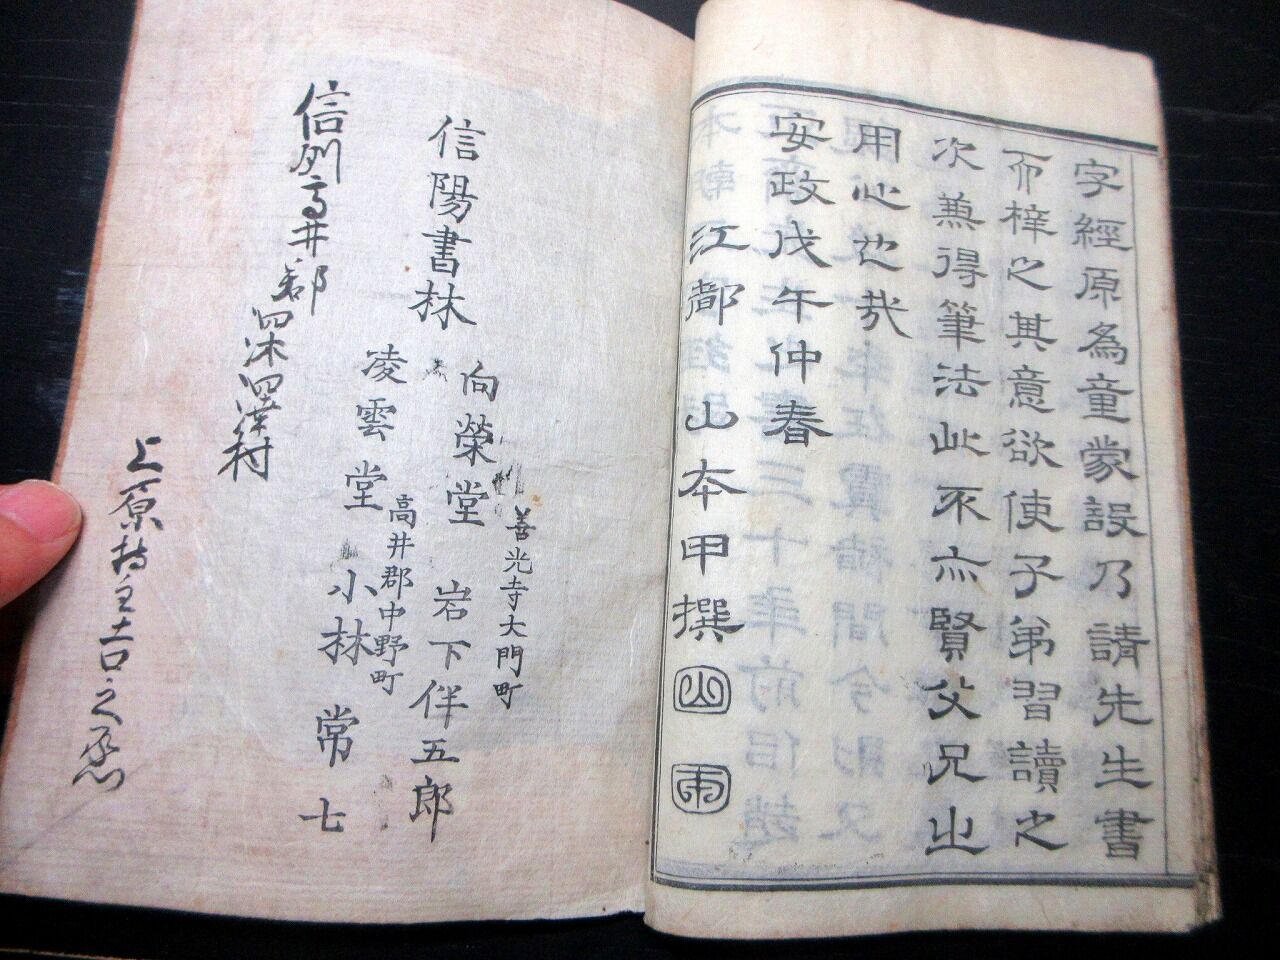 字經原為童蒙設乃請先生書
而梓之其意欲使子弟習讀之
次兼得筆法此不亦賢父兄之
用心也哉
安政戊午仲春
江都 山本甲撰
信陽書林
善光寺大門町
向榮堂 岩下伴五郎
高井郡中野町
凌雲堂 小林常七
信州高井郡
村
上原持主吉之丞